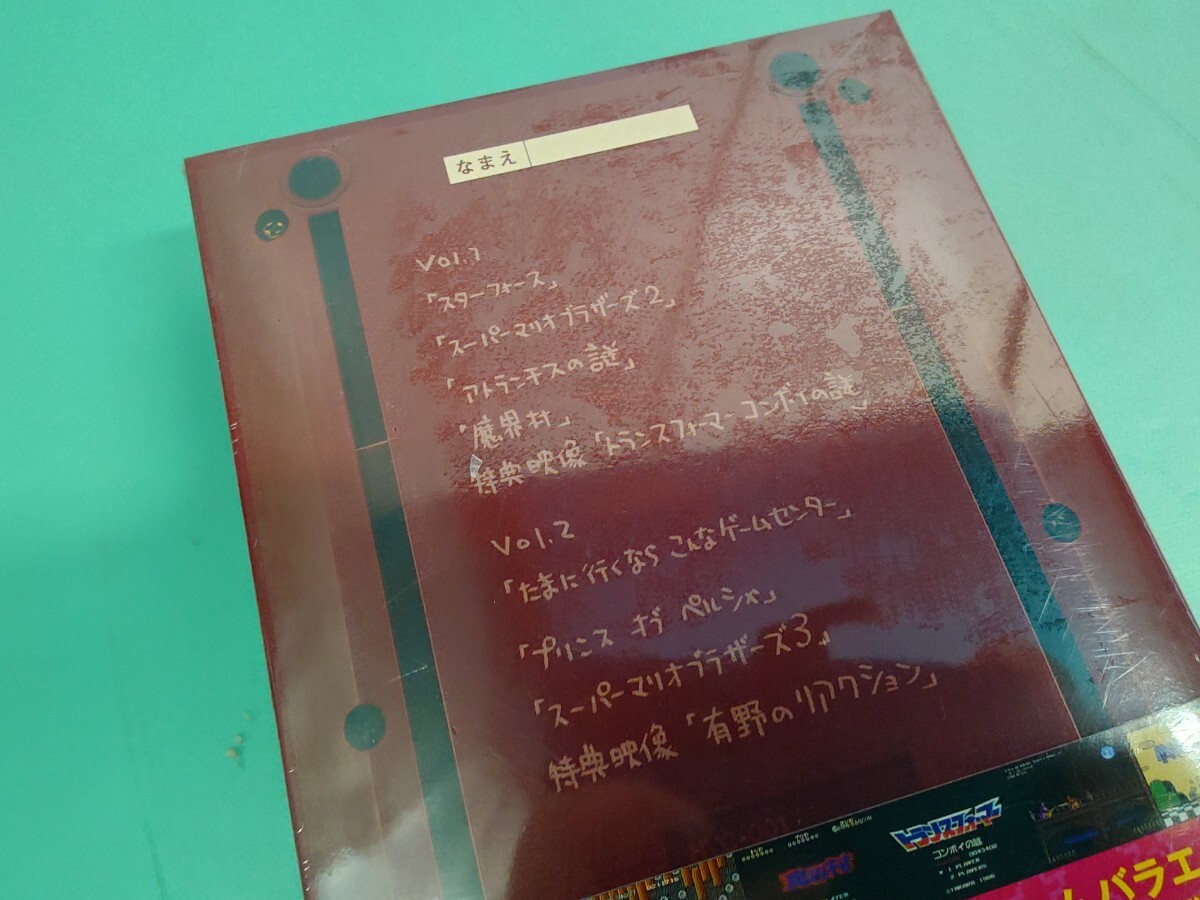 なまえ
Vol.1
「スターフォース」
「スーパーマリオブラザーズ2」
「アトランチスの謎」
「魔界村」
特典映像「トランスフォーマー コンボイの謎」
Vol.2
「たまに行くなら こんなゲームセンター」
「プリンス オブ ペルシャ」
「スーパーマリオブラザーズ3」
特典映像「有野のリアクション」
トランスフォーマー
コンボイの謎
1 PLAYER
2 PLAYERS
ムバラエ